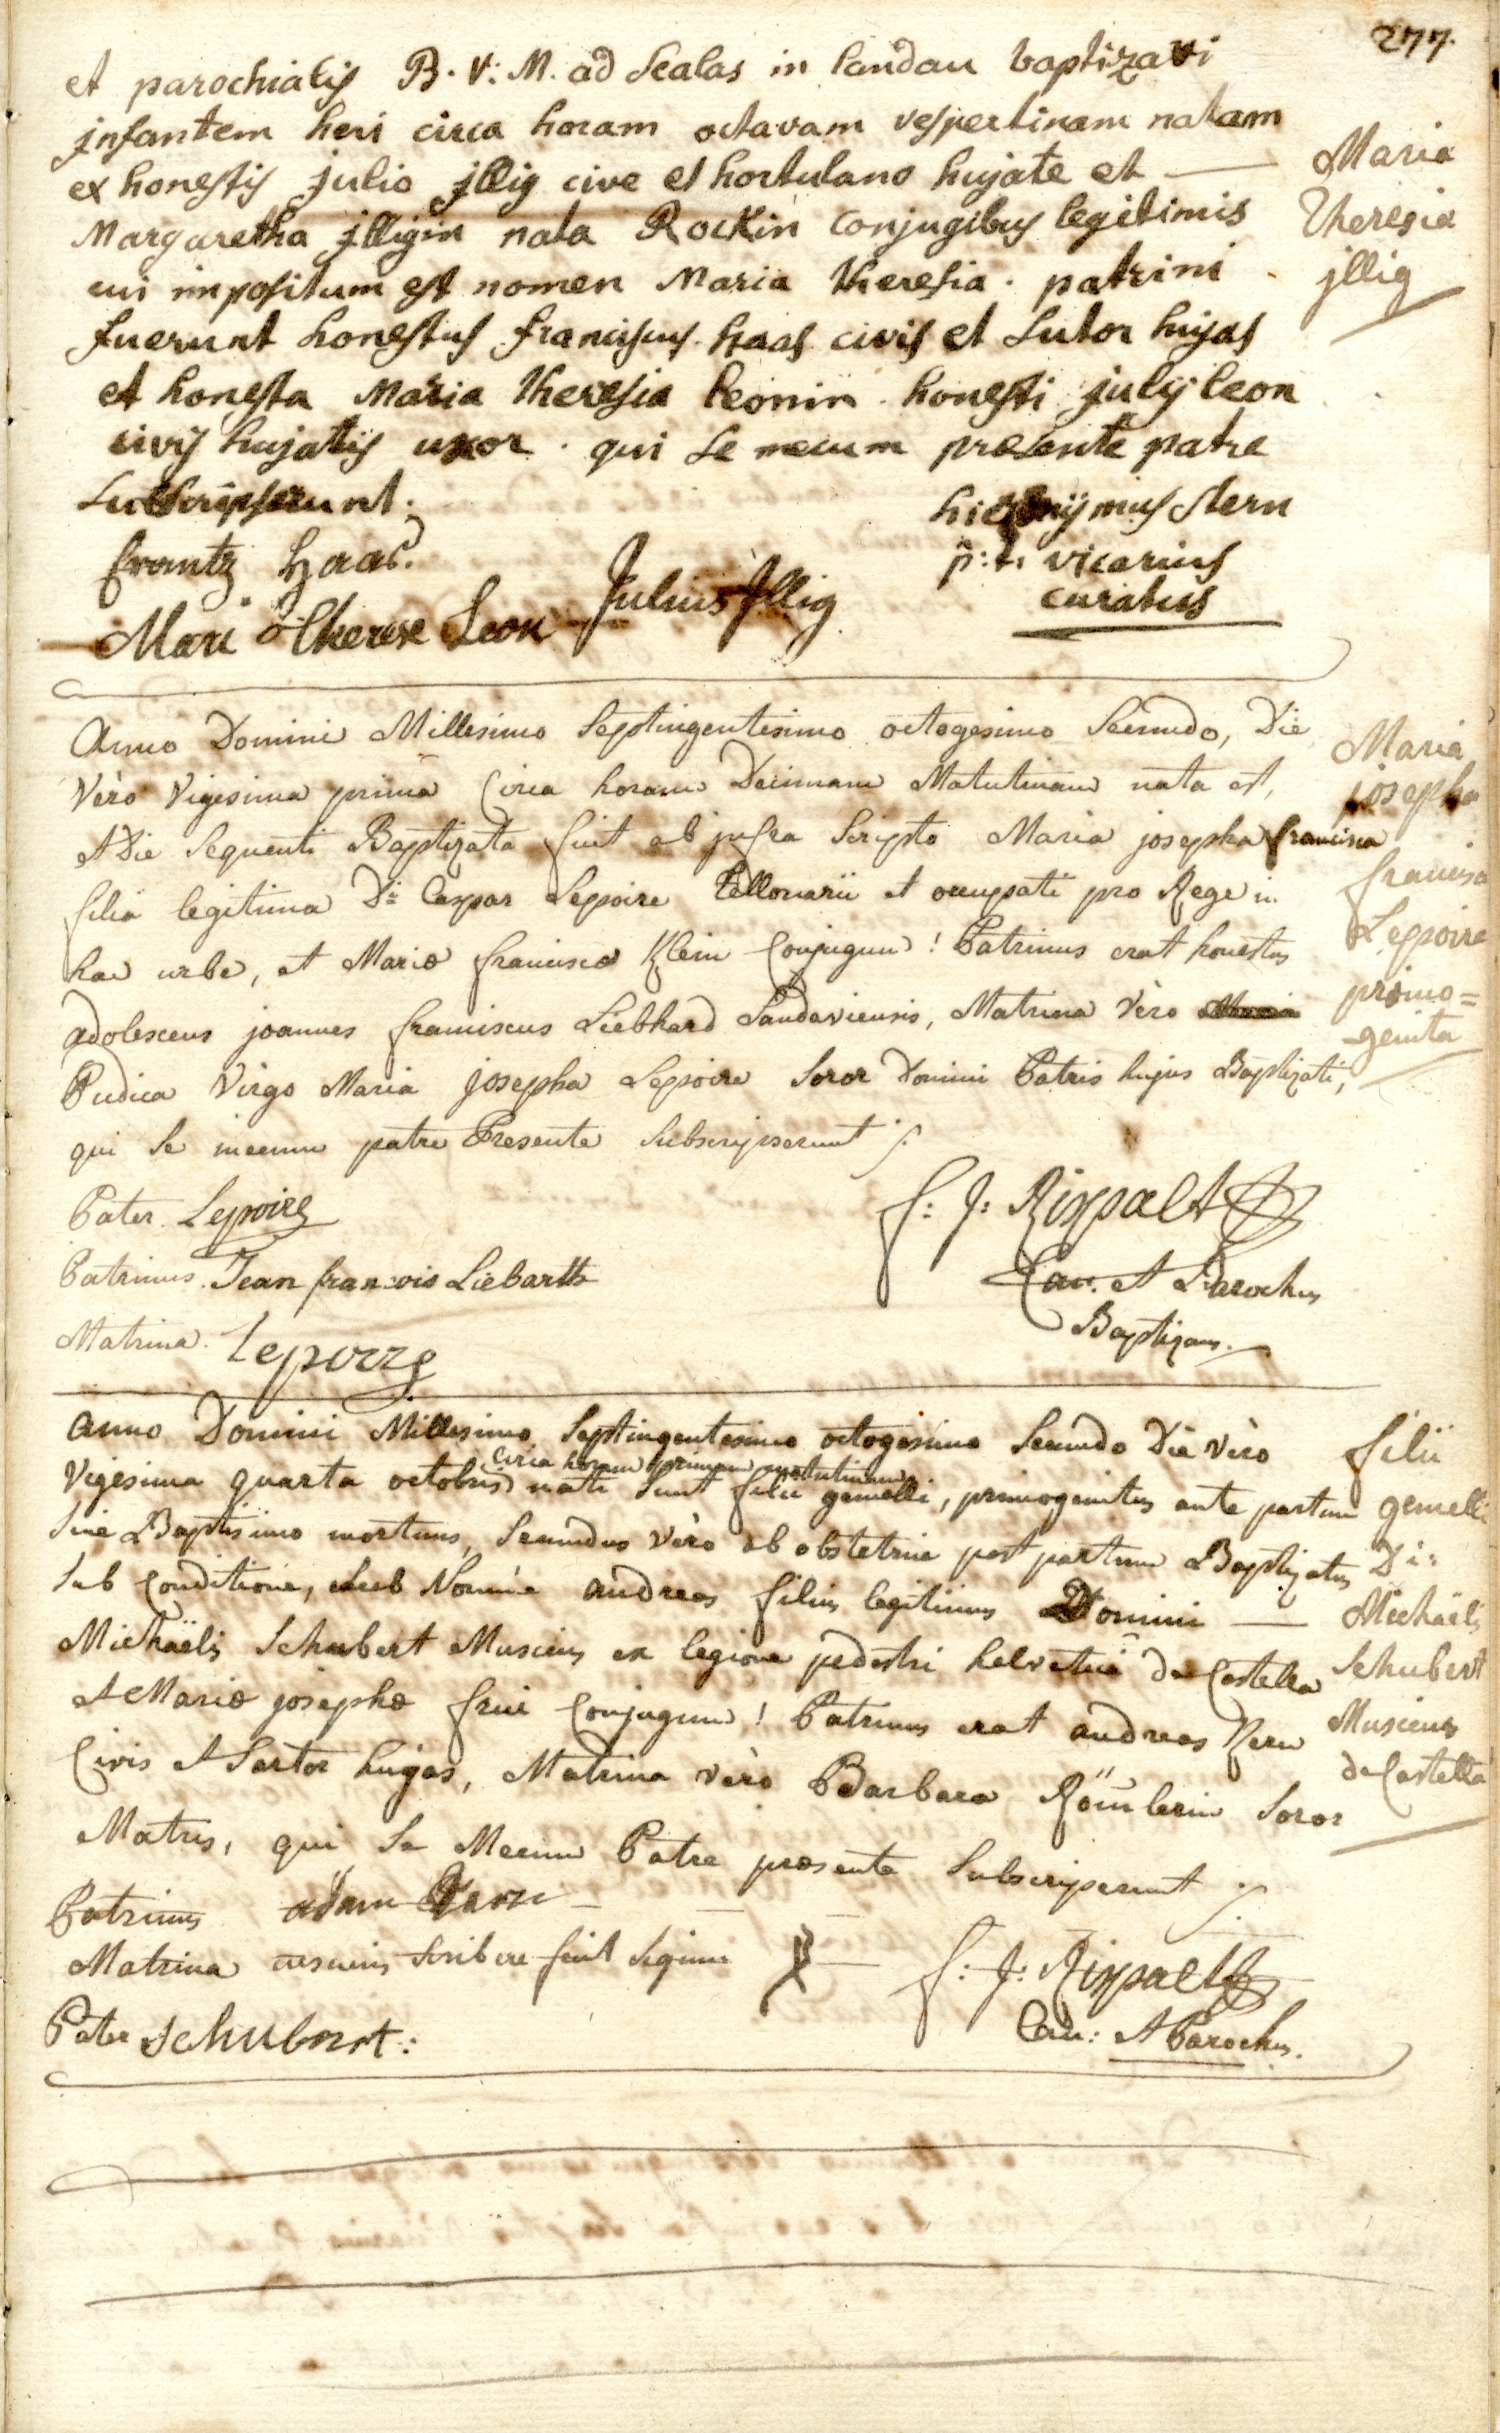 277.
et parochialis B. V. M. ad Scalas in landau baptizavi
jnfantem heri circa horam octavam vespertinam natam
ex honestis julio jllig cive et hortulano hujate et —
Margaretha jlligin nata Rockin conjugibus legitimis
cui impositum est nomen Maria Theresia. patrini
fuerunt honestus franciscus haas civis et sutor hujas
et honesta Maria theresia leonin honesti julij leon
civis hujatis uxor. qui se mecum presente patre
subscripserunt.
Maria
Theresia
jllig
hieronijmus Stern
p: t: vicarius
curatus
frantz Haas.
Julius Jllig
Mari Therese Leon
Anno Domini Millesimo Septingentesimo octogesimo Secundo, Die
Vèro Vigesima prima Circa horam Decimam Matutinam nata est,
et Die Sequenti Baptizata fuit ab jnfra Scripto Maria josepha francisca
filia legitima D: Caspar Lepoire Tellonarii et occupati pro Rege in
hac urbe, et Mariæ franciscæ Klein Conjugum! Patrinus erat honestus
adolescens joannes franciscus Liebhard Landaviensis, Matrina Vèro
Pudica Virgo Maria josepha Lepoire Soror Domini Patris hujus Baptizati,
qui Se mecum patre Presente Subscripserunt
Maria
josepha
francisca
Lepoire
primo=
genita
Pater Lepoire
Patrinus. Jean francois Liebarth
Matrina. Leporre
f: J: Rixpalt
Can. et Parochus
Baptizans.
Anno Domini Millesimo Septingentesimo octogesimo Secundo Die Vèro
circa horam primam matutinam
Vigesima quarta octobris nati Sunt filii gemelli, primogenitus ante partum
Sine Baptismo mortuus, Secundus Vèro ab obstetrice post partum Baptizatus
Sub Conditione, Sub Nomine andreas filius legitimus Domini —
Michaëlis Schubert Musicus ex legione pedestri helvetica de Castella
et Mariæ josephæ Conjugum! Patrinus erat andreas Kern
Civis et Sartor hujas, Matrina vèro Barbara Römlerin Soror
Matris, qui Se Mecum Patre præsente Subscripserunt
filii
gemelli
Di:
Michaëlis
Schubert
Musicus
de Castella
Patrinus adam Kern
Matrina nesciens Scribere fecit Signum
Pater Schubert:
f: J: Rixpalt
Can: et Parochus.